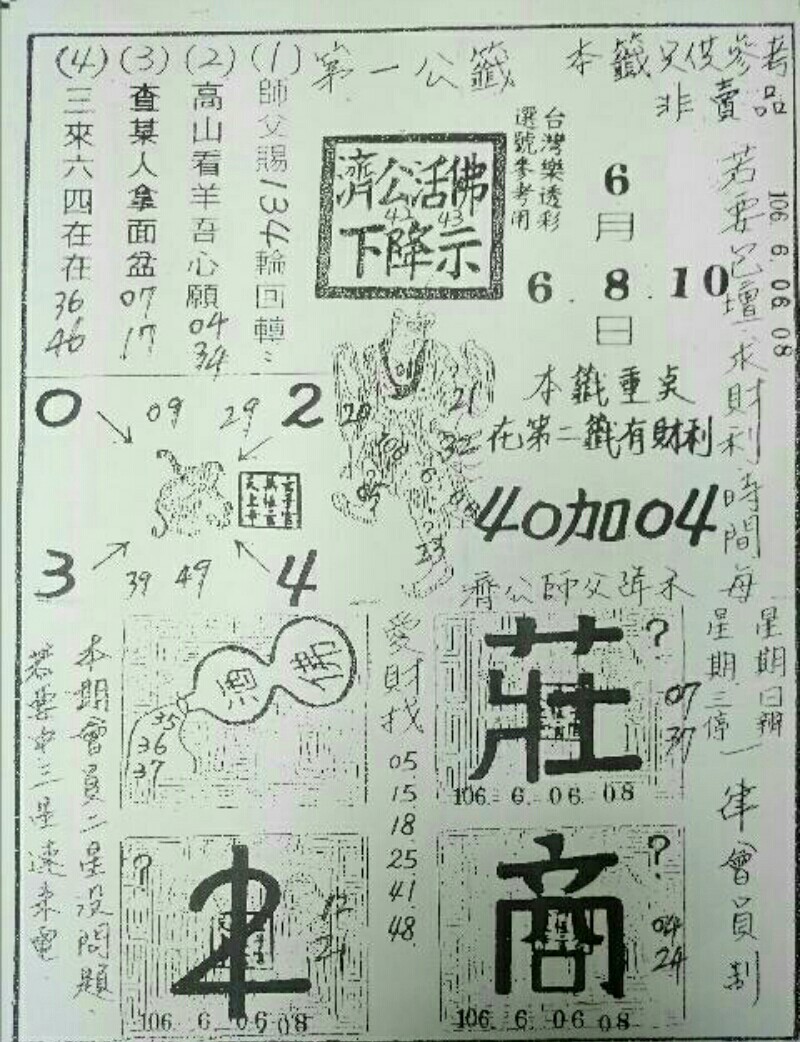 第一公籤
本籤只供參考
非賣品
(1)師父賜134輪回轉
(2)高山看羊吾心願 04 34
(3)查某人拿面盆 07 17
(4)三來六四在在 36 46
濟公活佛
42 43
下降示
台灣樂透彩
選號參考用
6
月
6.8.10
日
106 6 06 08
若要包壇求財利時間每
星期日辦
星期三停
一律會員制
本籤重點
在第二籤有財利
40加04
濟公師父降示
0
09
29
2
3
39
49
4
20
21
01
32
08
05
23
酒
佛
35
36
37
愛財找
05
15
18
25
41
48
莊
?
07
37
106. 6. 06. 08
?
12
21
106. 6. 06 08
商
?
04
24
106. 6. 06 08
本期會員二星沒問題
若要中三星速來電